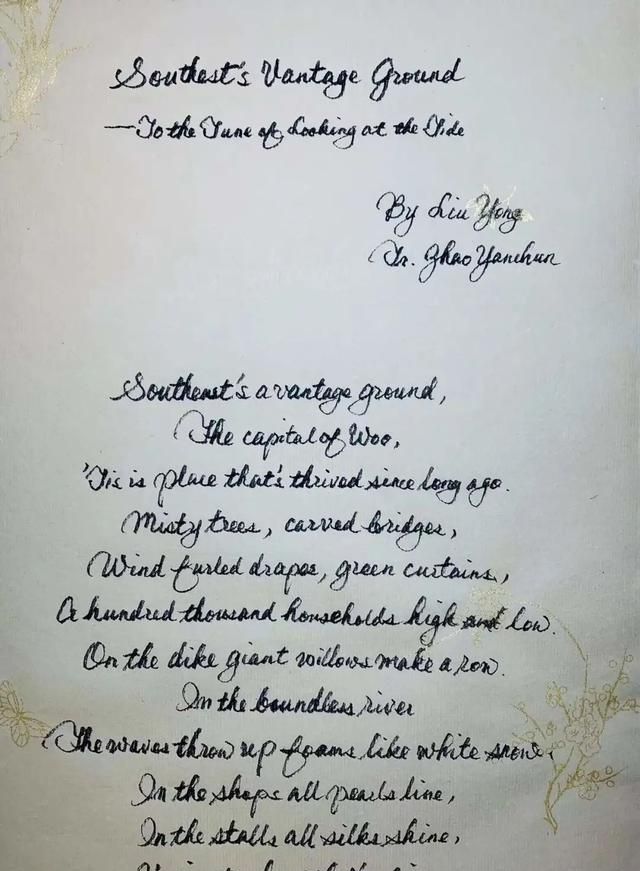 Southest's Vantage Ground
—To the Tune of Looking at the Tide
By Liu Yong
Tr. Zhao Yanchun
Southeast's a vantage ground,
The capital of Woo,
'Tis is place that's thrived since long ago.
Misty trees, carved bridges,
Wind furled drapes, green curtains,
A hundred thousand households high and low.
On the dike giant willows make a row.
In the boundless river
The waves throw up foams like white snow.
In the shops all pearls line,
In the stalls all silks shine,